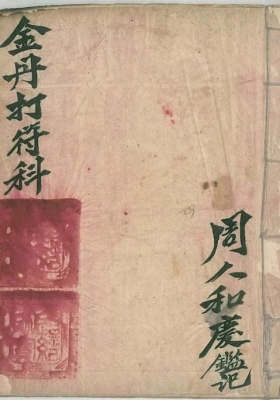 金丹打符科
周人和慶鑑记